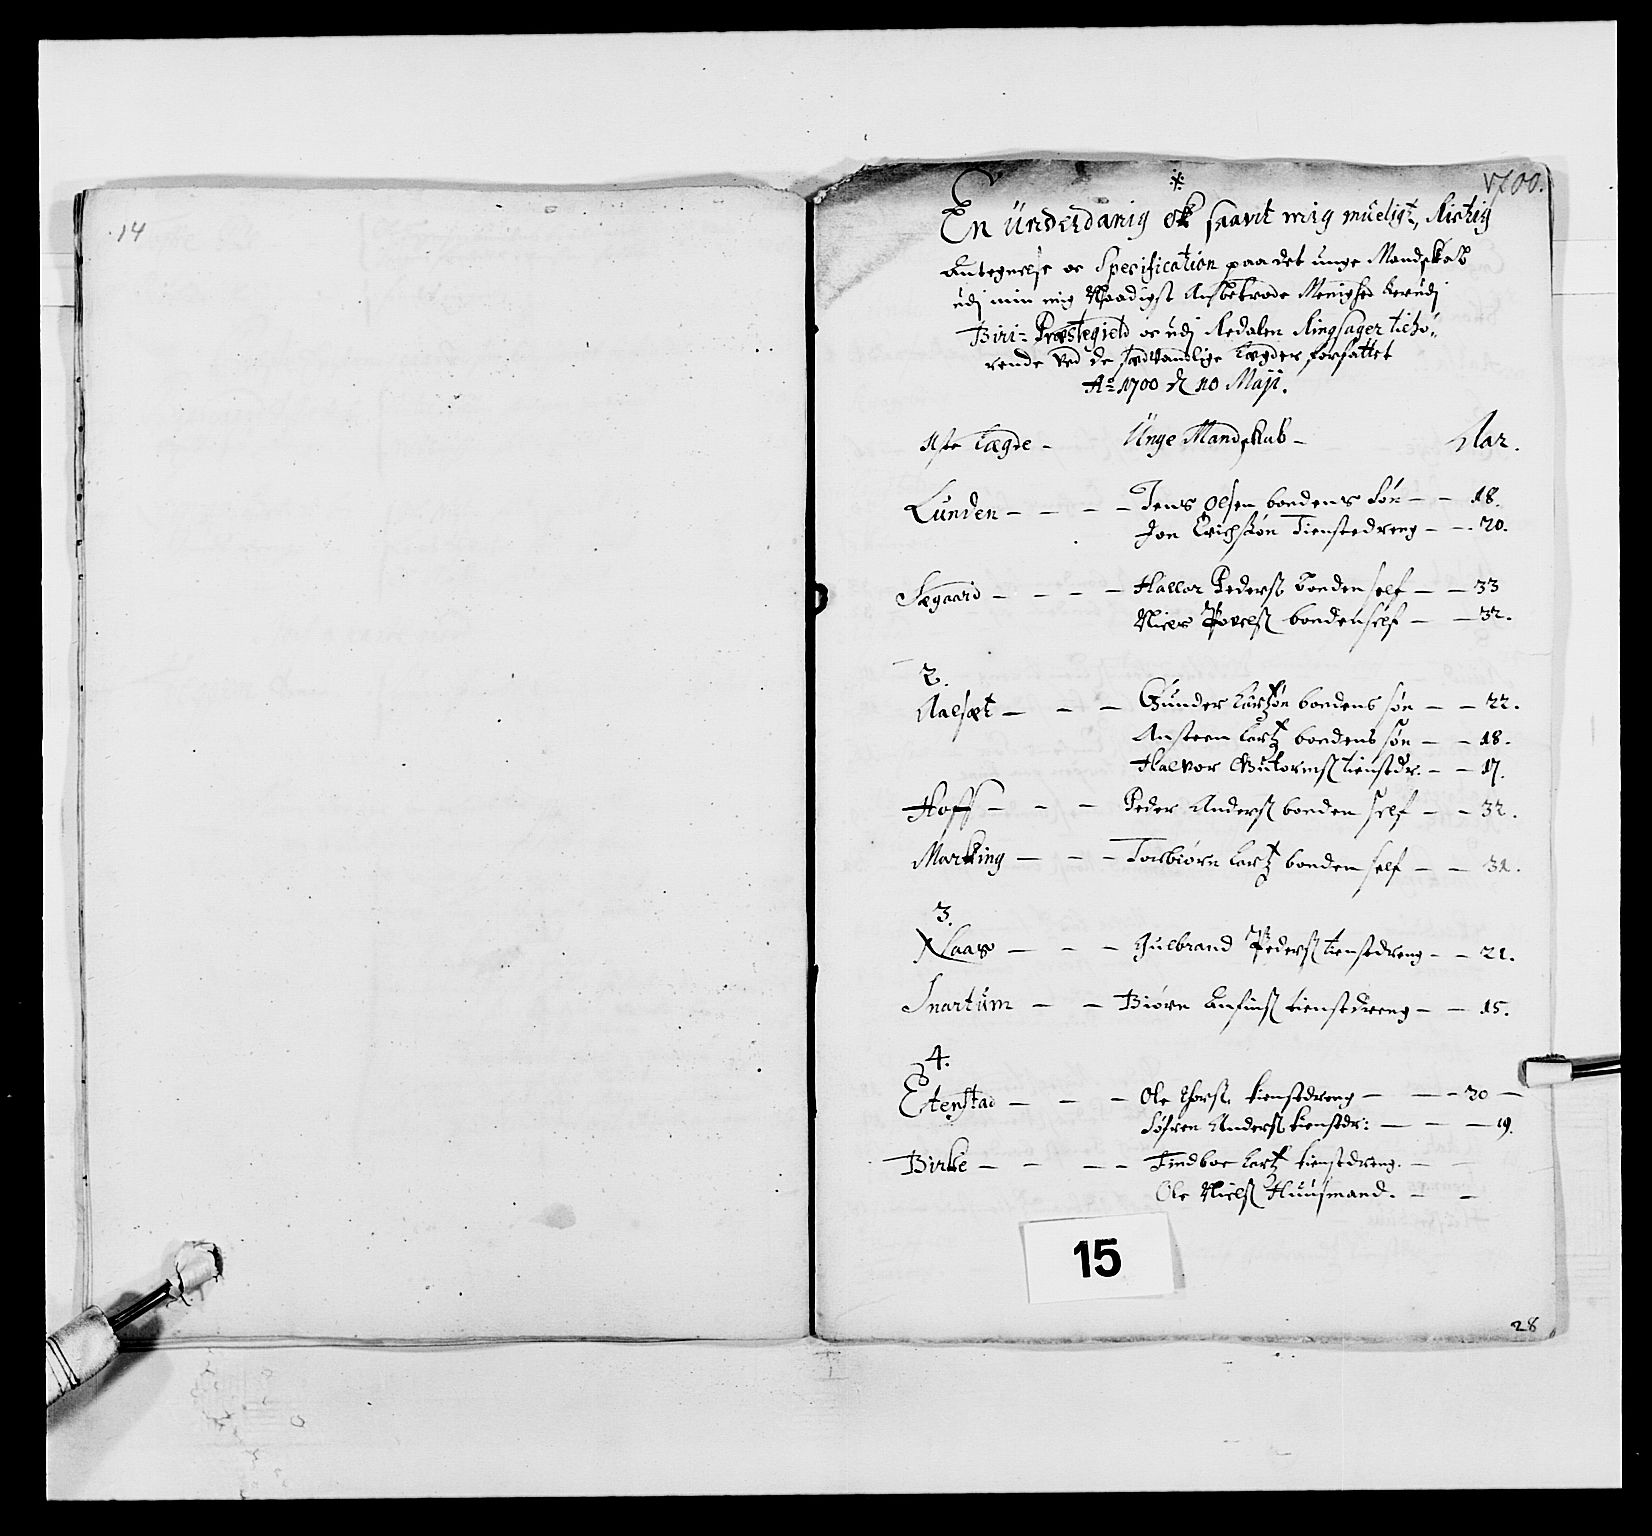 14
1700.
En Underdanig ok saavit mig mueligt, Rictig
Antegnelse oc Specification paa det unge Mandskab
udj min mig Naadigst Anbetrode Menighed herudj
Biri-Præstegield oc udj Redalen Ringsager tilhö-
rende ved de sædvanlige Lægder forfattet
Ao 1700 d 10 Maji.
1ste Lægde - Unge Mandskab - Aar.
Lunden - - - - Jens Olsen bondens Søn - - 18.
Jon Erichsøn Tienstedreng - - 20.
Sægaard - - - - Hallor Peders bonden self - - 33
Niels Povels bonden self - - 32.
2.
Aalsæt - - - Gunder Lartzøn bondens søn - - 22.
Ansteen Lartz bondens søn - - 18.
Halvor Gutorms tienstdr. - - 17.
Hoff - - - Peder Anders bonden self - - 32.
Markeng - - - Torbiørn Lartz bonden self - - 31.
3.
Klaas - - - Gulbrand Peders tienstdreng - - 21.
Snartum - - - Biørn Anfins tienstdreng - - 15.
4.
Etenstad - - - Ole Thors. tienstdreng - - - 30 -
Søfren Anders tienstdr: - - - 19.
Birke - - - - Findboe Lartz tienstdreng. - -
Ole Niels Huusmand. - -
15
28